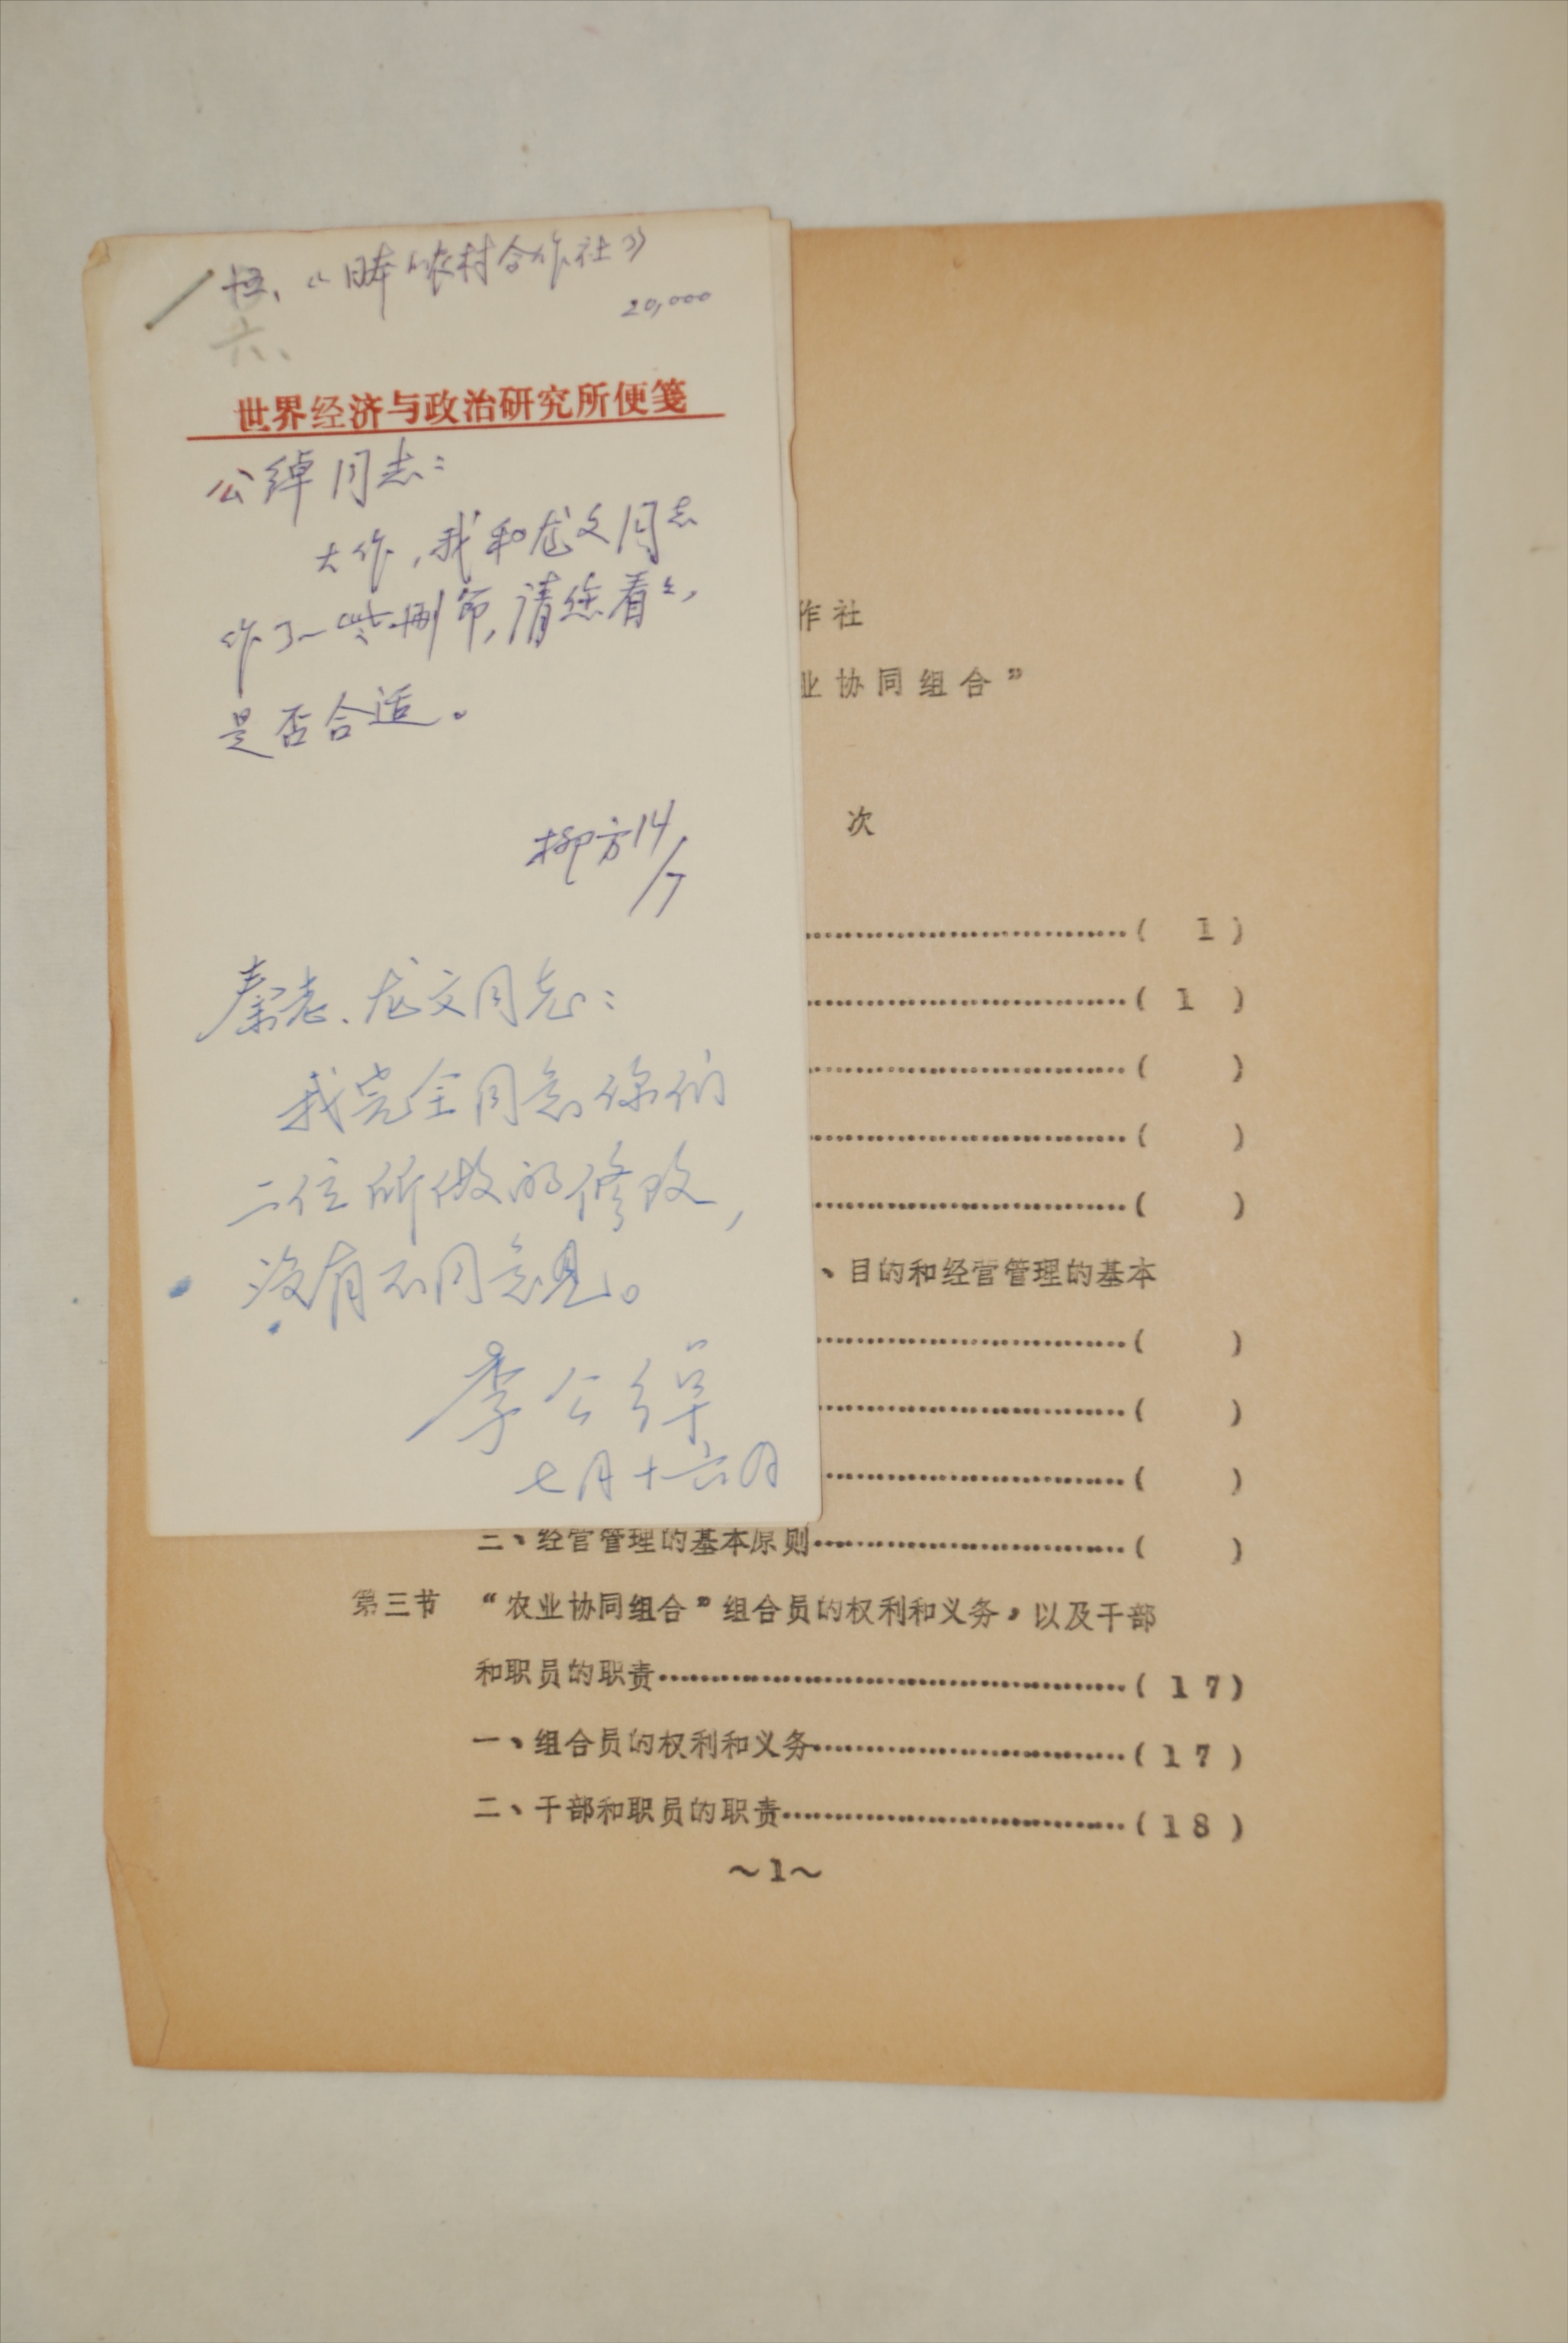 十五、《日本的农村合作社》
20,000
六、
世界经济与政治研究所便笺
公绰同志：
大作，我和龙文同志
作了一些删节，请您看看，
是否合适。
柳方14/7
秦老、龙文同志：
我完全同意你们
二位所做的修改，
没有不同意见。
李公绰
七月十六日
作社
业协同组合”
次
………………………………( 1 )
………………………………( 1 )
………………………………( )
………………………………( )
………………………………( )
、目的和经营管理的基本
………………………………( )
………………………………( )
………………………………( )
三、经营管理的基本原则………………………………( )
第三节 “农业协同组合”组合员的权利和义务，以及干部
和职员的职责………………………………( 17)
一、组合员的权利和义务………………………………( 17 )
二、干部和职员的职责………………………………( 18 )
～1～